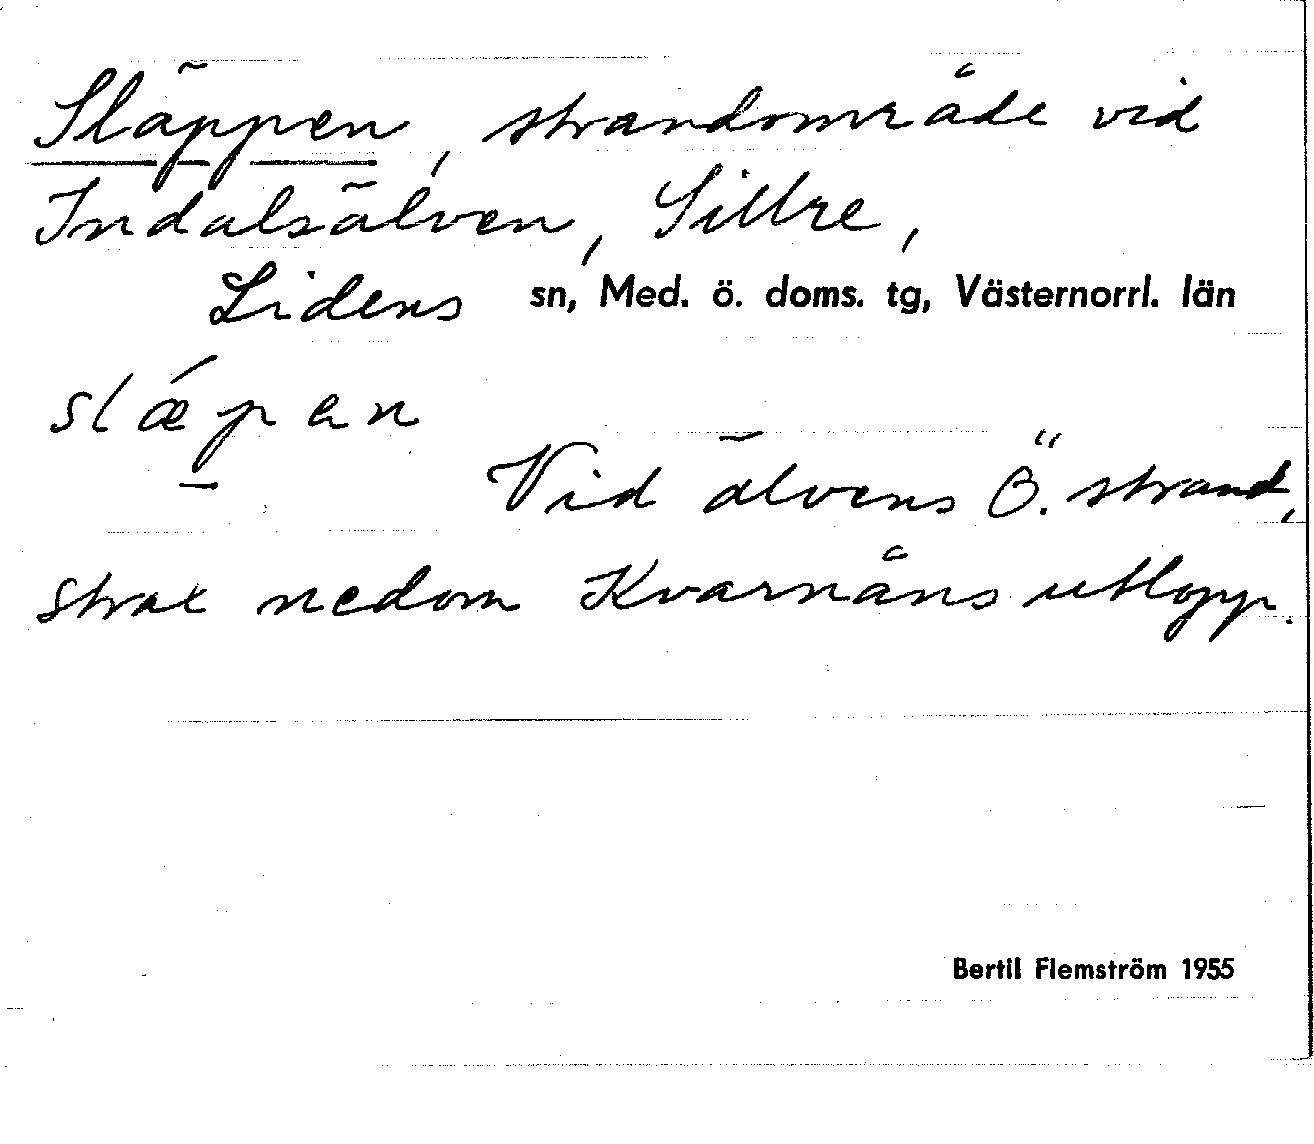 Släppen, strandområde vid
Indalsälven, Sillre,
Lidens sn, Med. ö. doms. tg, Västernorrl. län
slǽpen
Vid älvens Ö. strand,
strax nedom Kvarnåns utlopp.
Bertil Flemström 1955